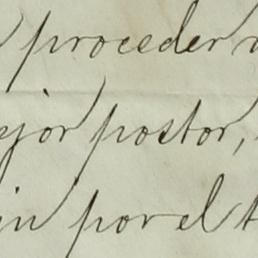 proceder
jor postor,
in por el